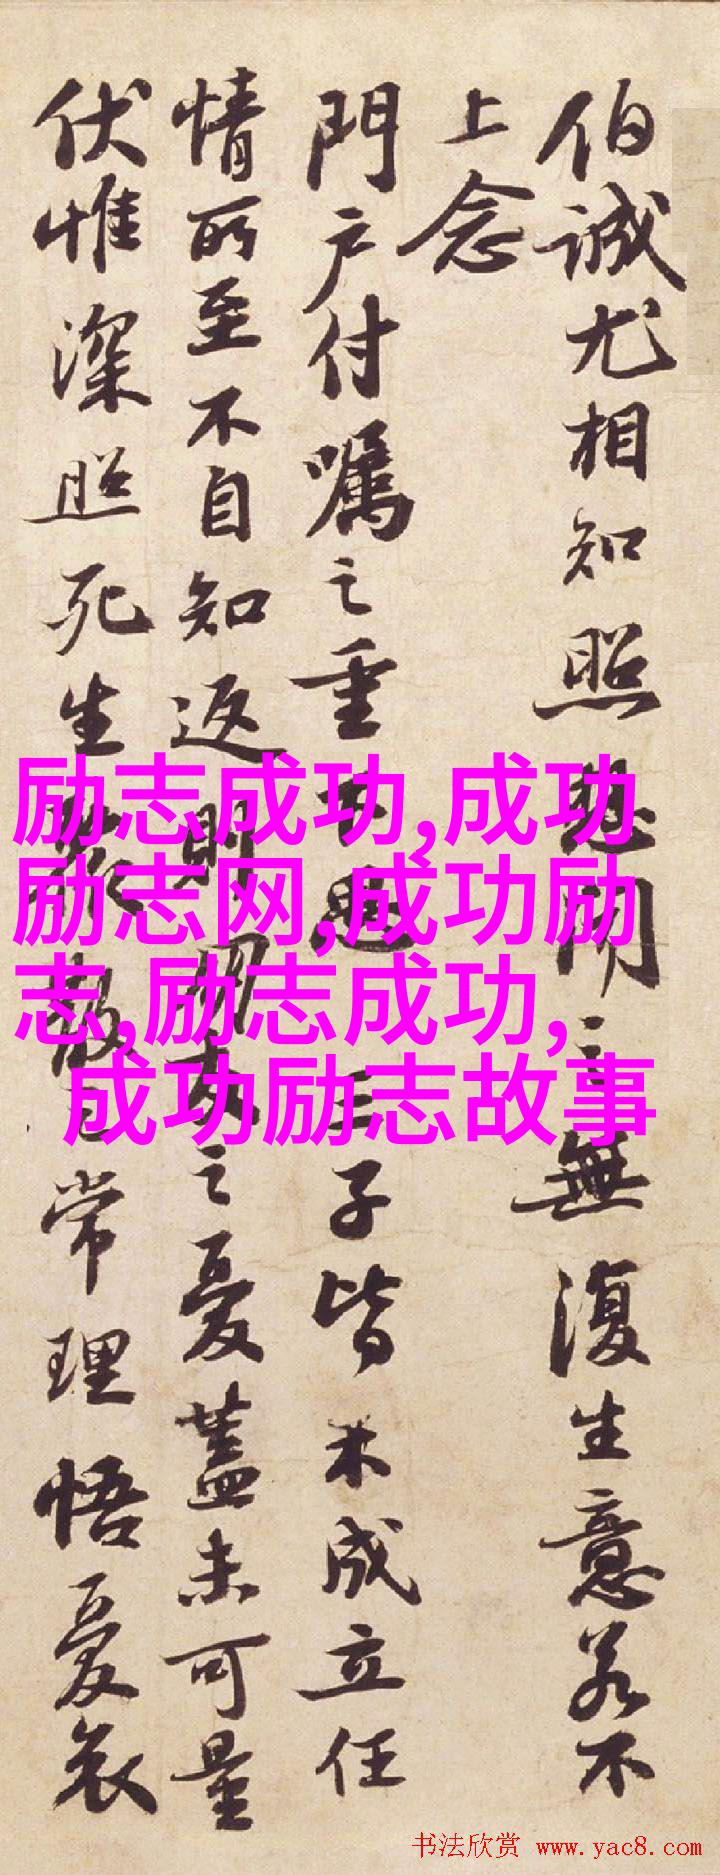 伯誠尤相知照想聞之無復生意若不
上念
門户付囑之重下思三子皆未成立任
情所至不自知返則朋友之憂蓋未可量
伏惟深照死生聚散之常理悟憂哀
励志成功,成功
励志网,成功励
志,励志成功,
成功励志故事
书法欣赏 www.yac8.com